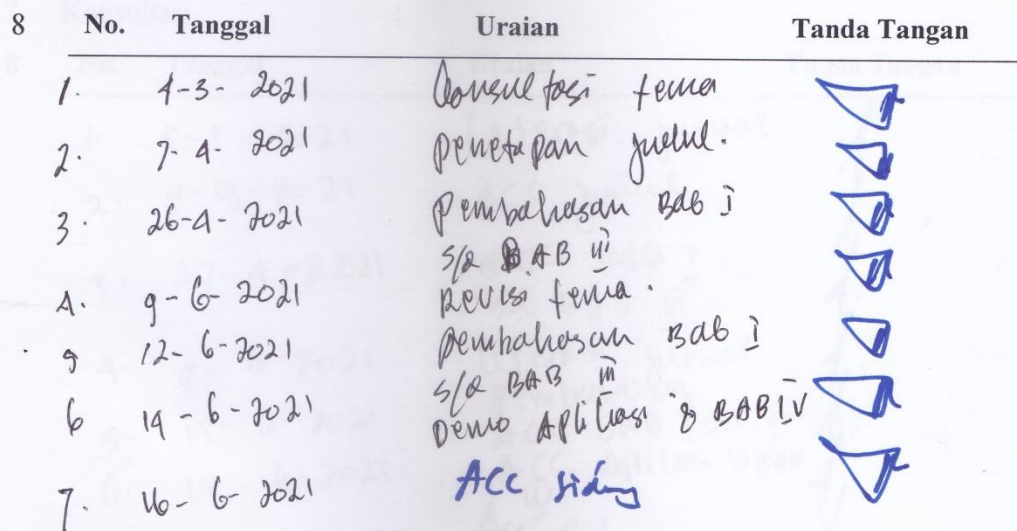 8 No. Tanggal Uraian Tanda Tangan
1. 4-3-2021 Konsultasi tema
2. 7-4-2021 Penetapan judul.
3. 26-4-2021 Pembahasan Bab I
s/d BAB III
4. 9-6-2021 Revisi tema.
5 12-6-2021 Pembahasan Bab I
s/d BAB III
6 14-6-2021 Demo Aplikasi & BAB IV
7. 16-6-2021 ACC Sidang